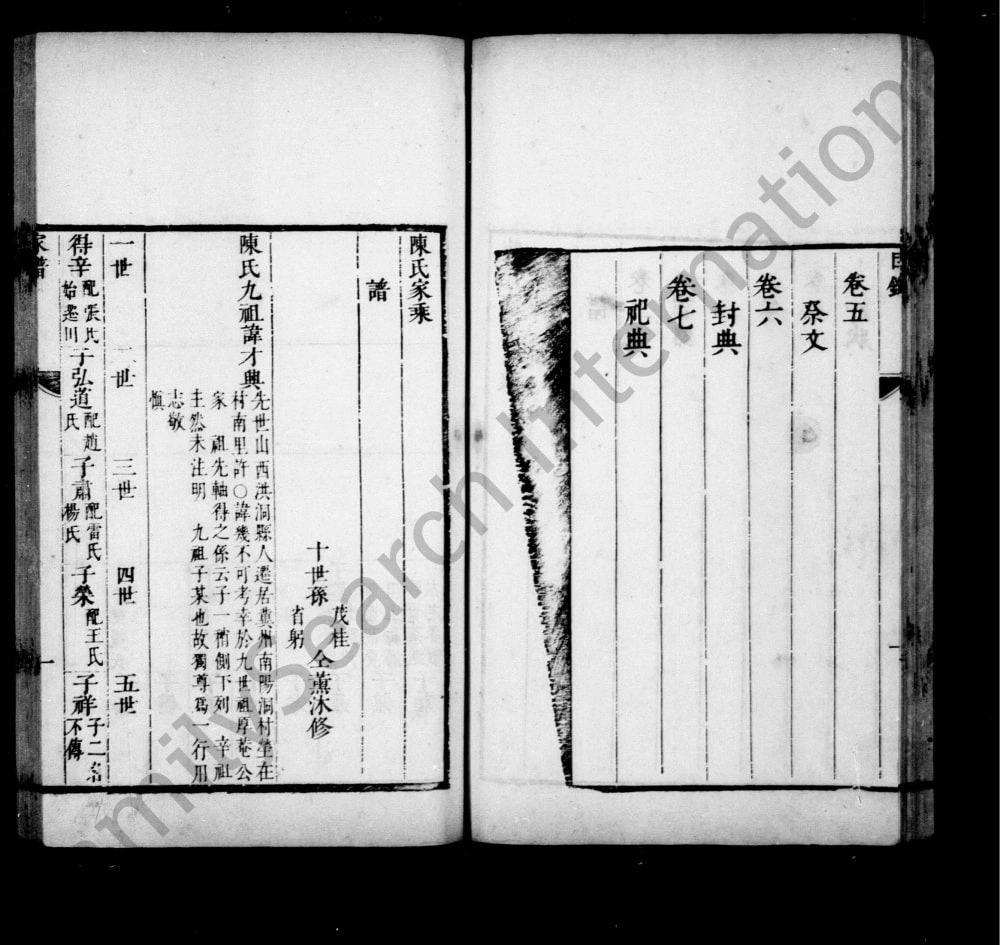 目錄
卷五
祭文
卷六
封典
卷七
祀典
一
陳氏家乘
譜
十世孫 茂桂 省躬 仝薰沐修
陳氏九祖諱才興 先世山西洪洞縣人遷居冀州南陽洞村塋在
村南里許○諱幾不可考幸於九世祖厚菴公
家 祖先軸得之係云子一稍側下列 辛祖
主然未注明 九祖子某也故獨尊為一行用
志敬
慎
一世 二世 三世 四世 五世
得辛 配張氏 始遷川 子弘道 配趙氏 子肅 配雷氏 楊氏 子榮 配王氏 子祥 子二名不傳
家譜
一
FamilySearch International